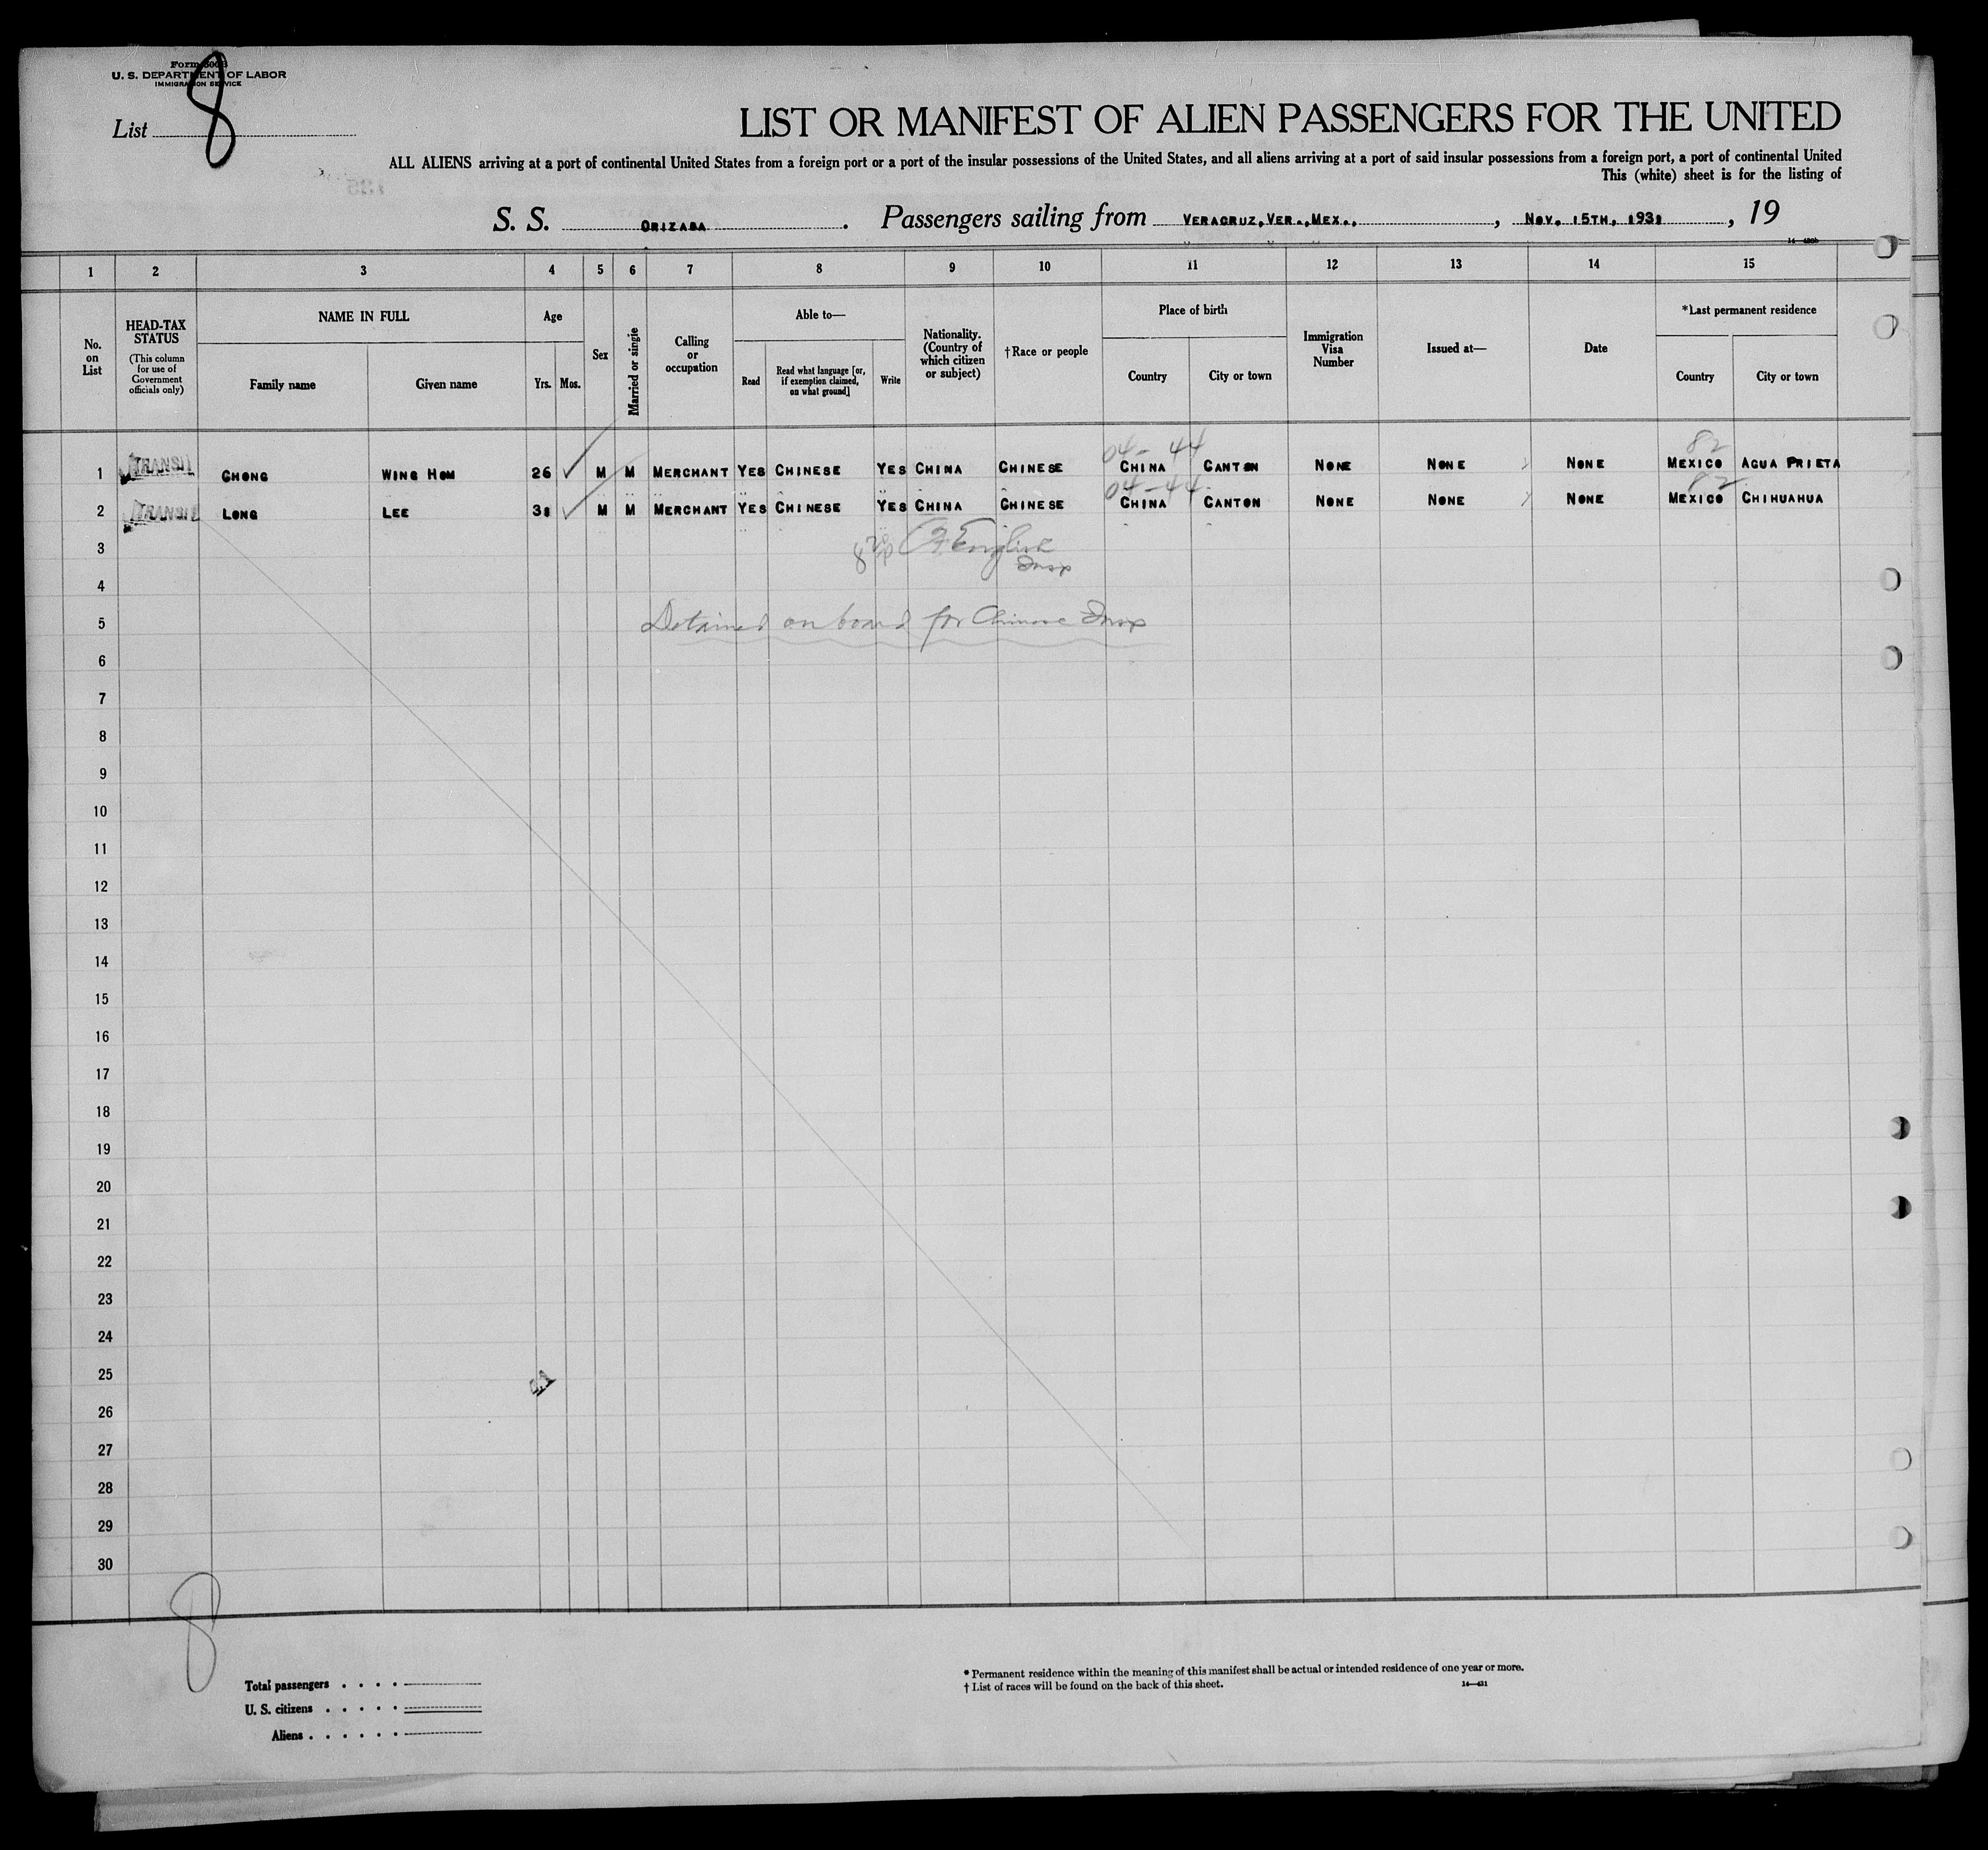 Form 500 B
U. S. DEPARTMENT OF LABOR
IMMIGRATION SERVICE
List 8
LIST OR MANIFEST OF ALIEN PASSENGERS FOR THE UNITED
ALL ALIENS arriving at a port of continental United States from a foreign port or a port of the insular possessions of the United States, and all aliens arriving at a port of said insular possessions from a foreign port, a port of continental United
This (white) sheet is for the listing of
S. S. ORIZABA. Passengers sailing from VERACRUZ, VER., MEX., , NOV. 15TH, 1931, 19
1 2 3 4 5 6 7 8 9 10 11 12 13 14 15
No. on List
HEAD-TAX STATUS
(This column for use of Government officials only)
NAME IN FULL
Family name
Given name
Age
Yrs. Mos.
Sex
Married or single
Calling or occupation
Able to—
Read
Read what language [or, if exemption claimed, on what ground]
Write
Nationality. (Country of which citizen or subject)
†Race or people
Place of birth
Country
City or town
Immigration Visa Number
Issued at—
Date
*Last permanent residence
Country
City or town
04- 44 82
1 TRANSIT CHONG WING HOM 26 M M MERCHANT YES CHINESE YES CHINA CHINESE CHINA CANTON NONE NONE NONE MEXICO AGUA PRIETA
04-44 82
2 TRANSIT LONG LEE M M MERCHANT YES CHINESE YES CHINA CHINESE CHINA CANTON NONE NONE NONE MEXICO CHIHUAHUA
3 English
Insp
4
5 Detained on board for Chinese Insp
6
7
8
9
10
11
12
13
14
15
16
17
18
19
20
21
22
23
24
25
26
27
28
29
30
8
Total passengers
U. S. citizens
Aliens
* Permanent residence within the meaning of this manifest shall be actual or intended residence of one year or more.
† List of races will be found on the back of this sheet.
14—431